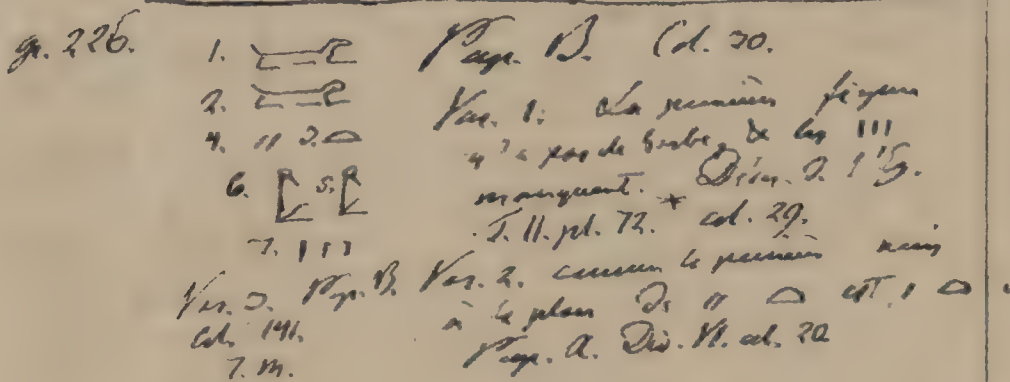 gr. 226.
1.
2.
4. 3.
6. 5.
7. III
Var. 3. Pap. B.
Col. 141.
7. m.
Pap. B. Col. 30.
Var. 1. La première figure
n'a pas de barbe, & les III
manquent. * Descr. d. l'Eg.
T. II. pl. 72. col. 29.
Var. 2. comme la première mais
à la place de
Pap. A. Div. VI. col. 20